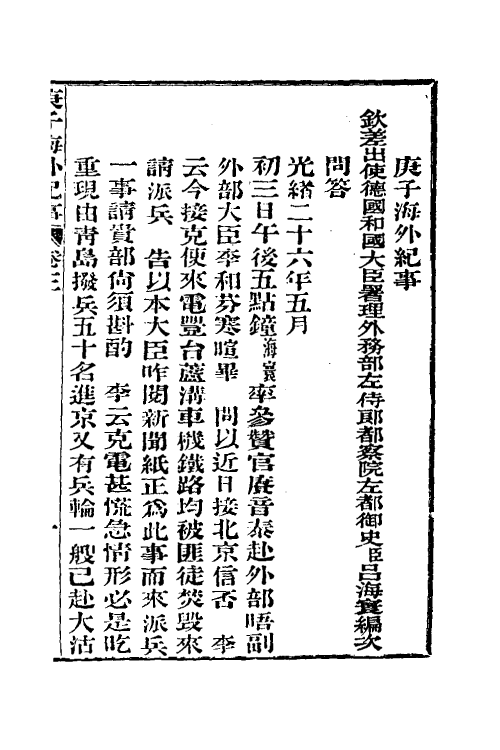 庚子海外紀事
欽差出使德國和國大臣署理外務部左侍郎都察院左都御史臣呂海寰編次
問答
光緒二十六年五月
初三日午後五點鐘海寰率參贊官賡音泰赴外部晤副
外部大臣李和芬寒暄畢　問以近日接北京信否　李
云今接克使來電豐台蘆溝車機鐵路均被匪徒焚毀來
請派兵　告以本大臣昨閱新聞紙正為此事而來派兵
一事請貴部尚須斟酌　李云克電甚慌急情形必是吃
重現由靑島撥兵五十名進京又有兵輪一般已赴大沽
庚子海外紀事　卷三　一